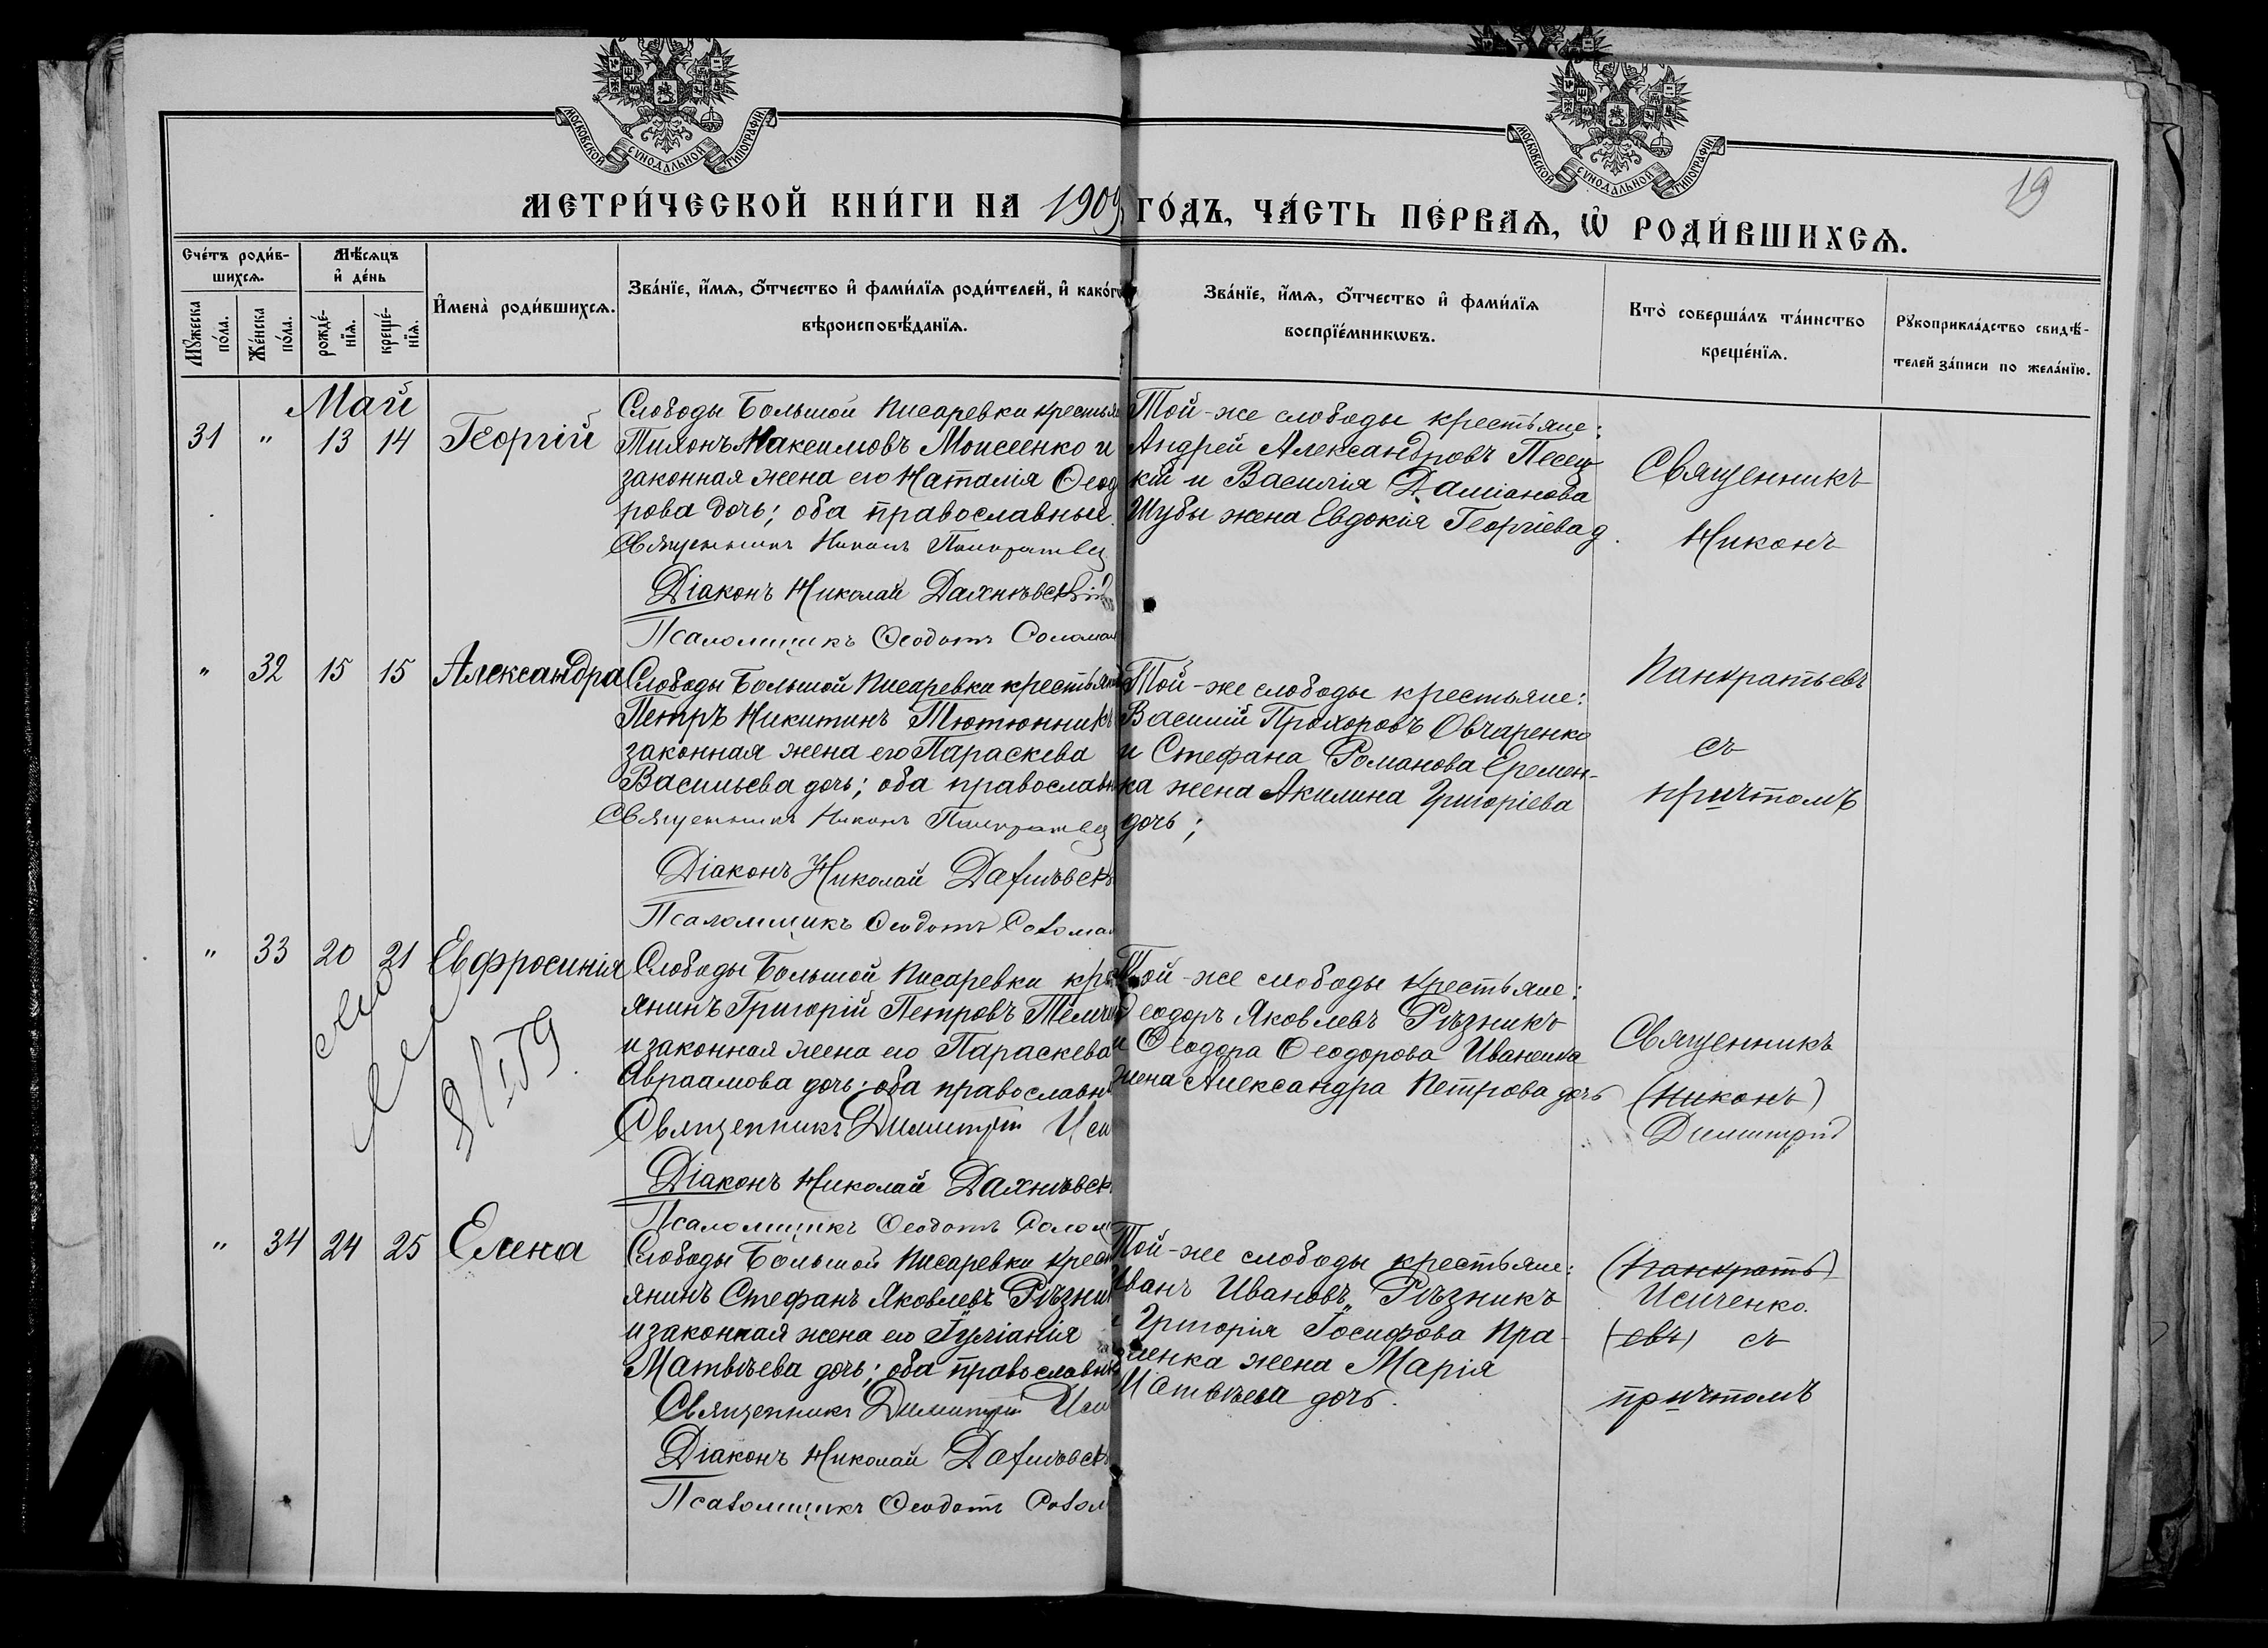 МОСКОВСКОЙ СѴНОДАЛЬНОЙ ТИПОГРАФІИ
МОСКОВСКОЙ СѴНОДАЛЬНОЙ ТИПОГРАФІИ
19
МЕТРИ́ЧЕСКОЙ КНИ́ГИ НА 1909 ГО́ДЪ, ЧА́СТЬ ПЕ́РВАѦ, Ѡ҆ РОДИ́ВШИХСѦ.
Сче́тъ роди́в-
шихсѧ.
Мꙋ́жеска
по́ла.
Же́нска
по́ла.
Мѣ́сѧцъ
и҆ де́нь
рожде́-
нїѧ.
креще́-
нїѧ.
И҆мена̀ роди́вшихсѧ.
Зва́нїе, и҆́мѧ, ѻ҆́тчество и҆ фами́лїѧ роди́телей, и҆ како́гѡ
вѣроисповѣ́данїѧ.
Зва́нїе, и҆́мѧ, ѻ҆́тчество и҆ фами́лїѧ
воспрїе́мникѡвъ.
Кто̀ соверша́лъ та́инство
креще́нїѧ.
Рꙋкоприкла́дство свидѣ́-
телей за́писи по жела́нїю.
Май
31 " 13 14 Георгій
Слободы Большой Писаревки крестья
Тихонъ Максимовъ Моисеенко и
законная жена его Наталія Ѳеод
рова дочь; оба православные.
Священникъ Никонъ Панкратьев
Діаконъ Николай Дахнѣвскій
Псаломщикъ Ѳеодотъ Солома
Той-же слободы крестьяне:
Андрей Александровъ Песец
кій и Василія Даміанова
Шубы жена Евдокія Георгіева д.
Священникъ
Никонъ
Панкратьевъ
съ
причтомъ
" 32 15 15 Александра
Слободы Большой Писаревки крестьяни
Петръ Никитинъ Тютюнникъ
законная жена его Параскева
Васильева дочь; оба православн
Священникъ Никонъ Панкратьев
Діаконъ Николай Дахнѣвск
Псаломщикъ Ѳеодотъ Солома
Той-же слободы крестьяне:
Василій Прохоровъ Овчаренко
и Стефана Романова Еремен-
ка жена Акилина Григоріева
дочь;
" 33 20 21 Евфросинія
Слободы Большой Писаревки кре
янинъ Григорій Петровъ
и законная жена его Параскева
Авраамова дочь; оба православн
Священникъ Димитрій Иси
Діаконъ Николай Дахнѣвск
Псаломщикъ Ѳеодотъ Солом
Той-же слободы крестьяне:
Ѳеодоръ Яковлевъ Рѣзникъ
и Ѳеодора Ѳеодорова
жена Александра Петрова дочь
Священникъ
(Никонъ)
Димитрій
(Панкрать)
Исиченко.
(евъ) съ
причтомъ
" 34 24 25 Елена
Слободы Большой Писаревки крест
янинъ Стефанъ Яковлевъ Рѣзни
и законная жена его Іуліанія
Матвѣева дочь; оба православн
Священникъ Димитрій Иси
Діаконъ Николай Дахнѣвск
Псаломщикъ Ѳеодотъ Солом
Той-же слободы крестьяне:
Иванъ Ивановъ Рѣзникъ
и Григорія Іосифова Пра-
ценка жена Марія
Матвѣева дочь.